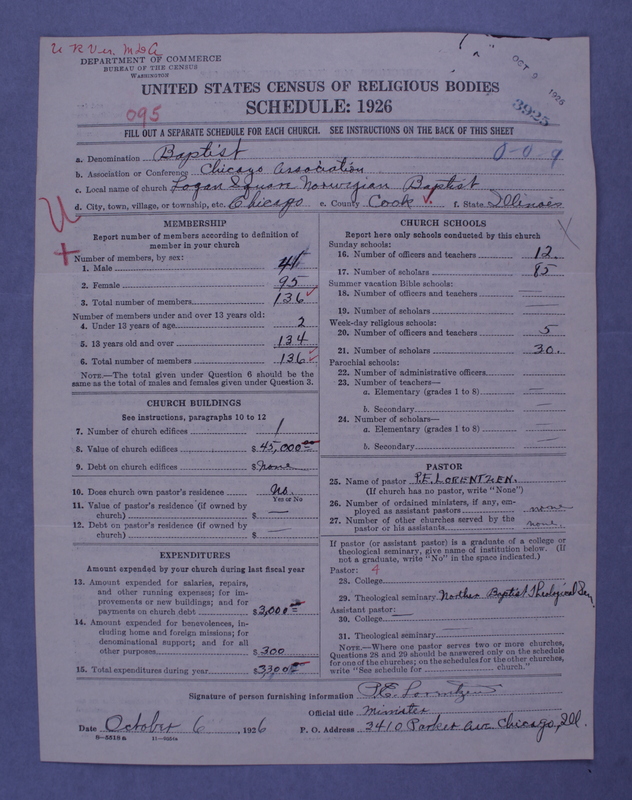 U R Ver. M&A
DEPARTMENT OF COMMERCE
BUREAU OF THE CENSUS
WASHINGTON
OCT 9 1926
UNITED STATES CENSUS OF RELIGIOUS BODIES
SCHEDULE: 1926
095
3925
FILL OUT A SEPARATE SCHEDULE FOR EACH CHURCH. SEE INSTRUCTIONS ON THE BACK OF THIS SHEET
a. Denomination Baptist
0-0 9
b. Association or Conference Chicago Association
c. Local name of church Logan Square Norwegian Baptist
d. City, town, village, or township, etc. Chicago e. County Cook f. State Illinois
MEMBERSHIP
Report number of members according to definition of
member in your church
Number of members, by sex:
1. Male 41
2. Female 95
3. Total number of members 136
Number of members under and over 13 years old:
4. Under 13 years of age 2
5. 13 years old and over 134
6. Total number of members 136
NOTE.—The total given under Question 6 should be the
same as the total of males and females given under Question 3.
CHURCH BUILDINGS
See instructions, paragraphs 10 to 12
7. Number of church edifices 1
8. Value of church edifices $ 45,000
9. Debt on church edifices $ none
10. Does church own pastor's residence No.
Yes or No
11. Value of pastor's residence (if owned by
church) $ —
12. Debt on pastor's residence (if owned by
church) $ —
EXPENDITURES
Amount expended by your church during last fiscal year
13. Amount expended for salaries, repairs,
and other running expenses; for im-
provements or new buildings; and for
payments on church debt $3,000
14. Amount expended for benevolences, in-
cluding home and foreign missions; for
denominational support; and for all
other purposes $300
15. Total expenditures during year $3300
CHURCH SCHOOLS
Report here only schools conducted by this church
Sunday schools:
16. Number of officers and teachers 12.
17. Number of scholars 85
Summer vacation Bible schools:
18. Number of officers and teachers —
19. Number of scholars —
Week-day religious schools:
20. Number of officers and teachers 5
21. Number of scholars 30.
Parochial schools:
22. Number of administrative officers —
23. Number of teachers—
a. Elementary (grades 1 to 8) —
b. Secondary —
24. Number of scholars—
a. Elementary (grades 1 to 8) —
b. Secondary —
PASTOR
25. Name of pastor P.E. LORENTZEN.
(If church has no pastor, write "None")
26. Number of ordained ministers, if any, em-
ployed as assistant pastors none
27. Number of other churches served by the
pastor or his assistants none.
If pastor (or assistant pastor) is a graduate of a college or
theological seminary, give name of institution below. (If
not a graduate, write "No" in the space indicated.)
Pastor: 4
28. College
29. Theological seminary Northern Baptist Theological Sem.
Assistant pastor: —
30. College
31. Theological seminary
NOTE.—Where one pastor serves two or more churches,
Questions 28 and 29 should be answered only on the schedule
for one of the churches; on the schedules for the other churches,
write "See schedule for church."
Signature of person furnishing information P.E. Lorentzen
Official title Minister
Date October 6, 1926 P. O. Address 3410 Parker Ave. Chicago, Ill.
8—5518a 11—9204a